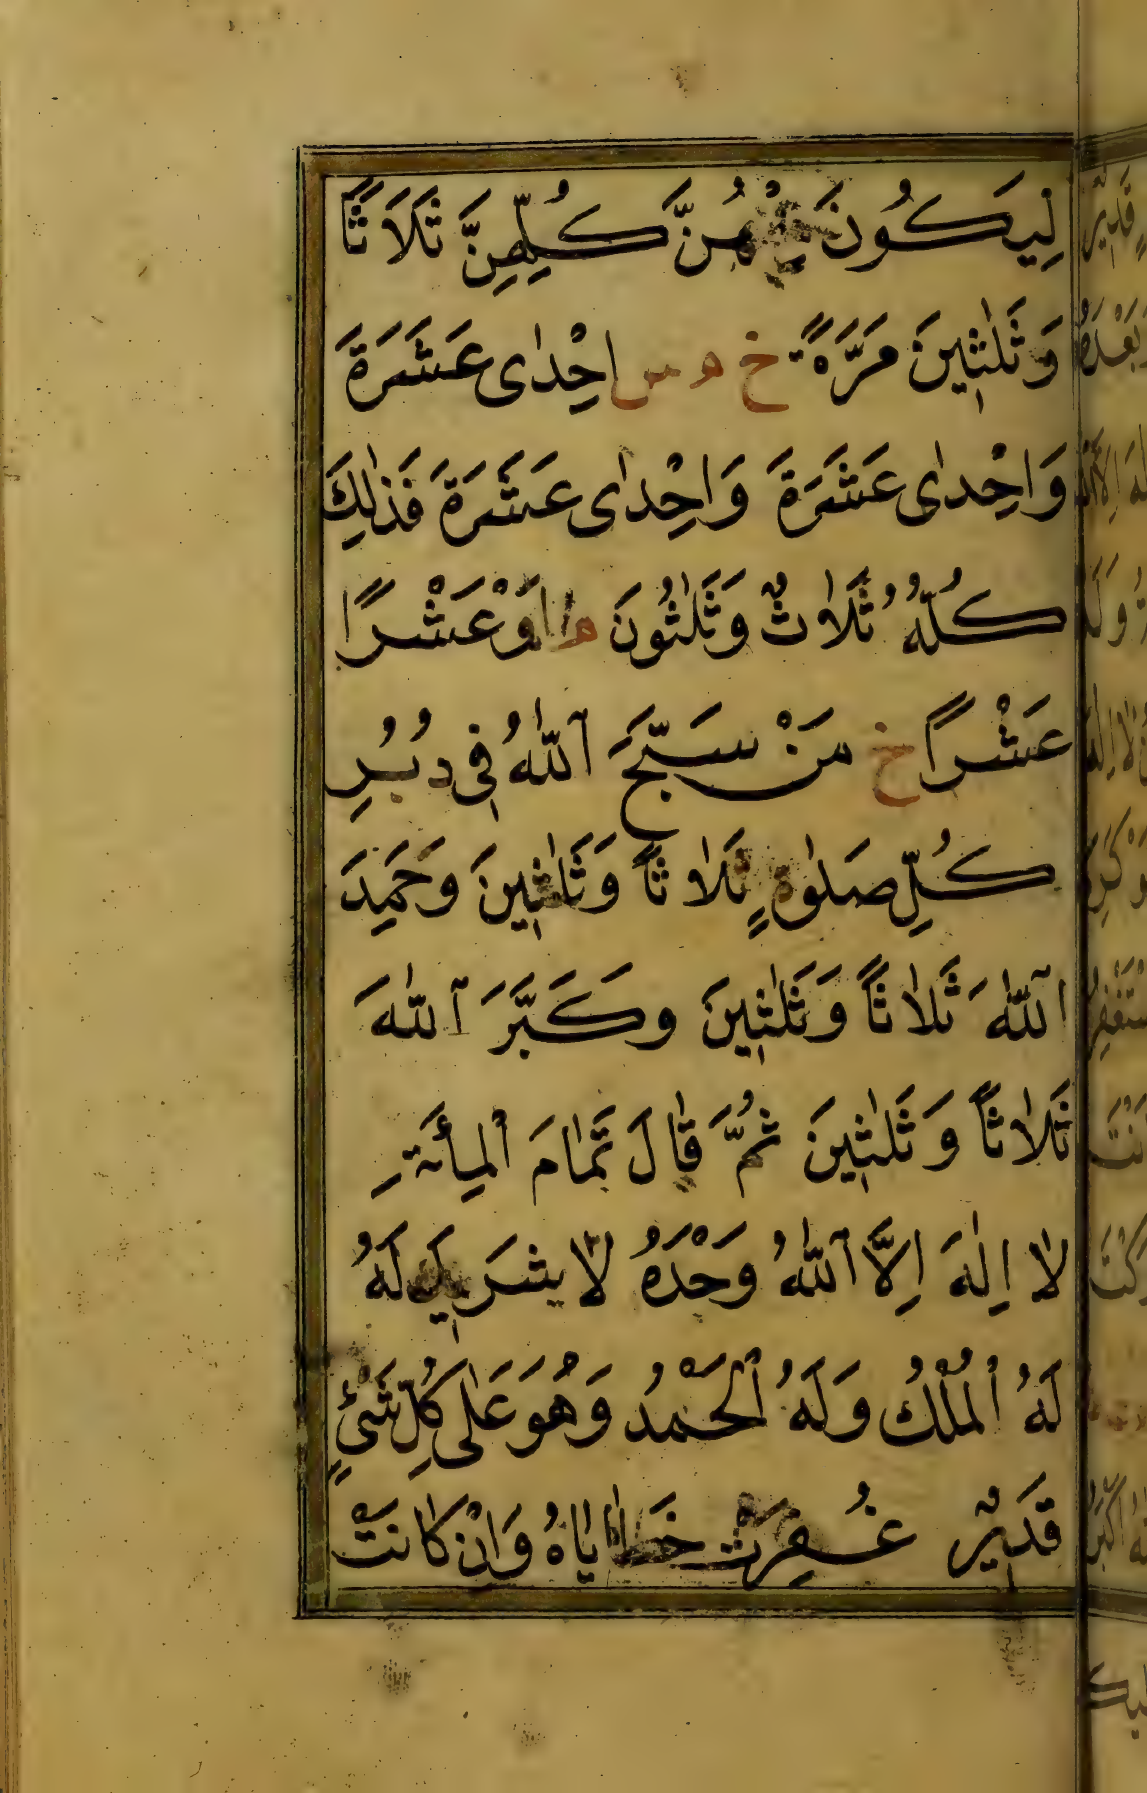 لِيَكُونَ مِنْهُنَّ كُلِّهِنَّ ثَلَاثًا
وَثَلٰثِينَ مَرَّةً خ م س اِحْدٰى عَشَرَةَ
وَاِحْدٰى عَشَرَةَ وَاِحْدٰى عَشَرَةَ فَذٰلِكَ
كُلُّهُ ثَلَاثٌ وَثَلٰثُونَ م اَوْ عَشْرًا
عَشْرًا خ مَنْ سَبَّحَ اللّٰهُ فِى دُبُرِ
كُلِّ صَلٰوةٍ ثَلَاثًا وَثَلٰثِينَ وَحَمِدَ
اللّٰهَ ثَلَاثًا وَثَلٰثِينَ وَكَبَّرَ اللّٰهَ
ثَلَاثًا وَثَلٰثِينَ ثُمَّ قَالَ تَمَامَ الْمِأَةِ
لَا اِلٰهَ اِلَّا اللّٰهُ وَحْدَهُ لَا شَرِيكَ لَهُ
لَهُ الْمُلْكُ وَلَهُ الْحَمْدُ وَهُوَ عَلٰى كُلِّ شَىْءٍ
قَدِيرٌ غُفِرَتْ خَطَايَاهُ وَاِنْ كَانَتْ